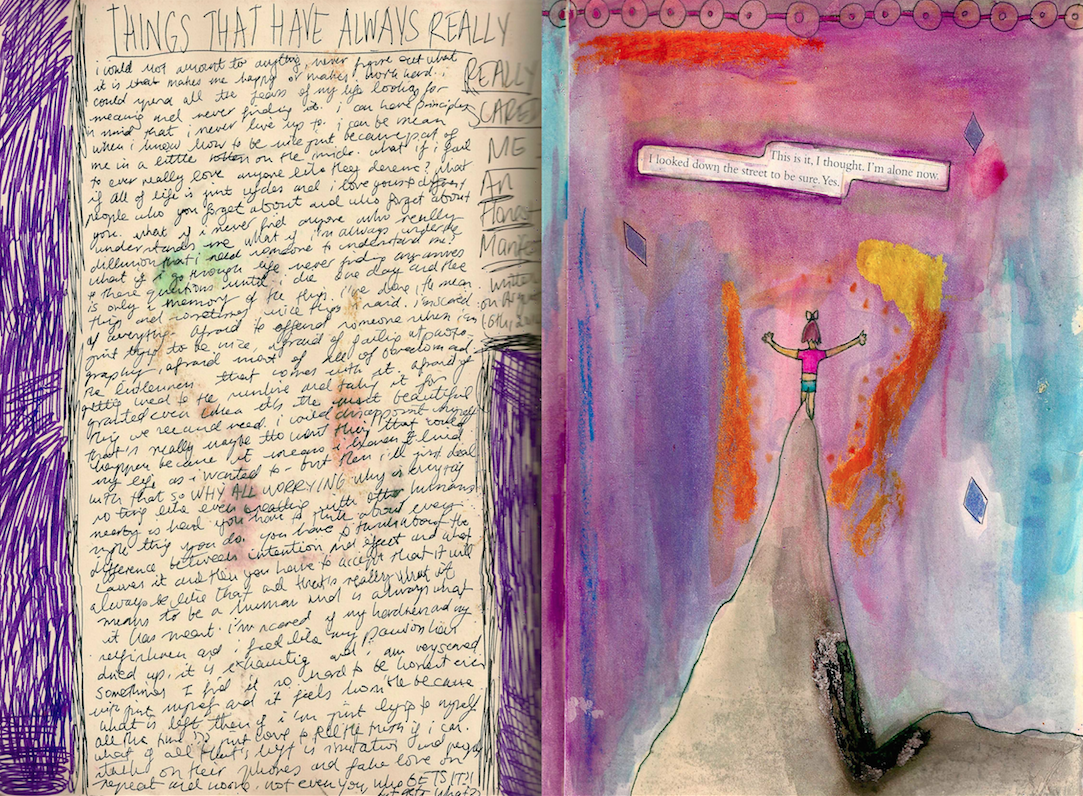 THINGS THAT HAVE ALWAYS REALLY
REALLY
SCARED
ME -
An
i would not amount to anything, never figure out what
it is that makes me happy or makes work hard. i
could spend all the years of my life looking for
meaning and never finding it. i can have principles
in mind that i never live up to. i can be mean
when i know how to be nice just because part of
me is a little rotten on the inside. what if i fail
to ever really love anyone like they deserve? what
if all of life is just cycles and i love you to different
people who you forget about and who forget about
you. what if i never find anyone who really
understands me what if i'm always under the
dillusion that i need someone to understand me?
what if i go through life never finding any answers
to these questions until i die one day and there
is only a memory of the things i've done, the mean
things and sometimes nice things. afraid. i'm scared
of everything. afraid to offend someone when i'm
just trying to be nice, afraid of failing at
graphy, afraid most of all of boredom and
the listlessness that comes with it. afraid of
getting used to the sunshine and taking it for
granted even when it's the most beautiful
thing we see and need. i could disappoint myself
that's really maybe the worst thing that could
happen because it means i haven't lived
my life as i wanted to - but then i'll just deal
with that so WHY ALL WORRYING why is everything
so tiring like even breathing with other humans
nearby is hard you have to think about every
single thing you do. you have to think about the
difference between intention and effect and what
causes it and then you have to accept that it will
always be like that and that is really what it
means to be a human and is always what
it has meant. i'm scared of my hardness and my
and i feel like my passion has
dried up, it is exhausting and i am very scared
sometimes i find it so hard to be honest even
with just myself and it feels horrible because
what is left then if i'm just lying to myself
all the time so just have to tell the truth if i can.
what if all that's left is imitation and people
on their phones and fake love on
repeat and words. not even you, who GETS IT?!
This is it, I thought. I'm alone now.
I looked down the street to be sure. Yes.